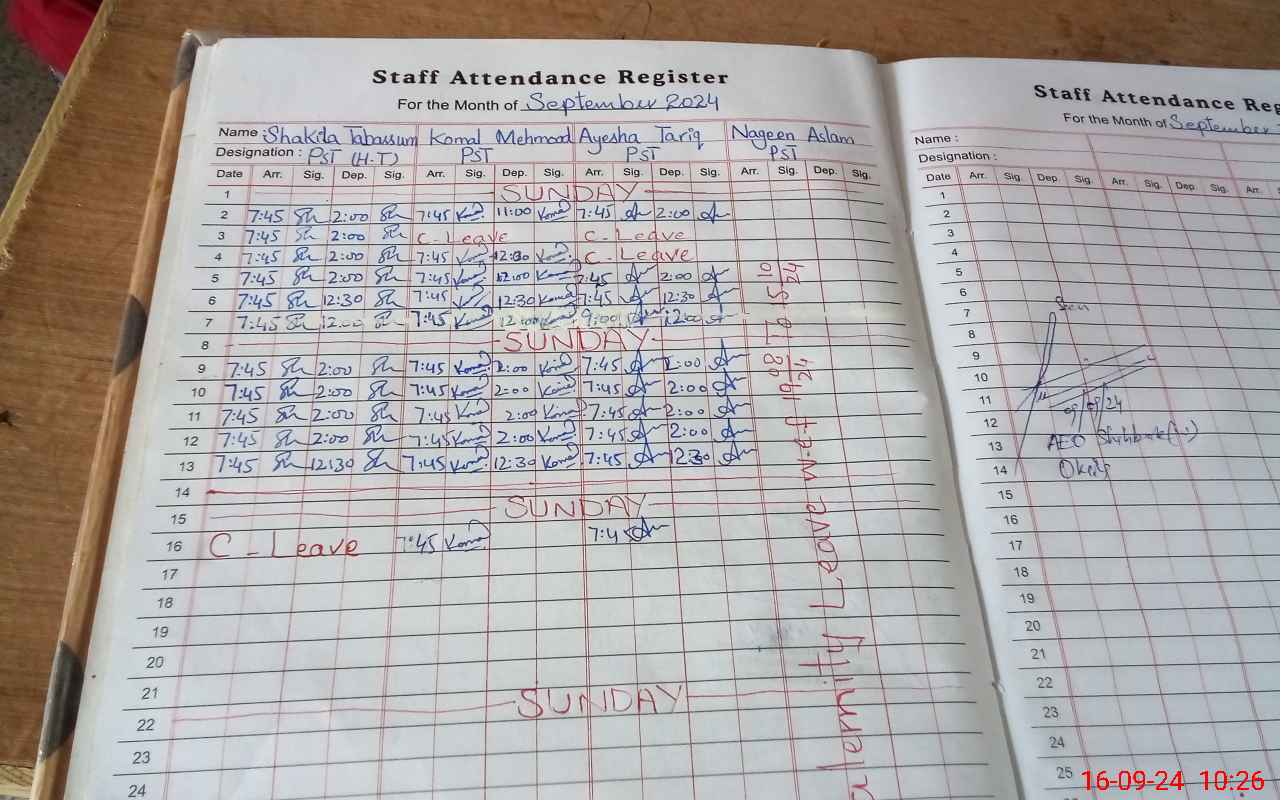 Staff Attendance Register
For the Month of September 2024
Name : Shakila Tabassum Komal Mehmood Ayesha Tariq Nageen Aslam
Designation : PST (H.T) PST PST PST
Date Arr. Sig. Dep. Sig. Arr. Sig. Dep. Sig. Arr. Sig. Dep. Sig. Arr. Sig. Dep. Sig.
1 SUNDAY
2 7:45 Sh 2:00 Sh 7:45 Komal 11:00 Komal 7:45 2:00
3 7:45 Sh 2:00 Sh C-Leave C-Leave
4 7:45 Sh 2:00 Sh 7:45 Komal 12:30 Komal C-Leave
5 7:45 Sh 2:00 Sh 7:45 Komal 12:00 Komal 7:45 2:00
6 7:45 Sh 12:30 Sh 7:45 12:30 Komal 7:45 12:30
7 7:45 Sh 12:00 Sh 7:45 Komal 12:00 Komal 9:00 12:00
8 SUNDAY
9 7:45 Sh 2:00 Sh 7:45 Komal 2:00 Komal 7:45 2:00
10 7:45 Sh 2:00 Sh 7:45 Komal 2:00 Komal 7:45 2:00
11 7:45 Sh 2:00 Sh 7:45 Komal 2:00 Komal 7:45 2:00
12 7:45 Sh 2:00 Sh 7:45 Komal 2:00 Komal 7:45 2:00
13 7:45 Sh 12:30 Sh 7:45 Komal 12:30 Komal 7:45 12:30
14
15 SUNDAY
16 C-Leave 7:45 Komal 7:45
17
18
19
20
21
22 SUNDAY
23
24
Leave w.e.f
Staff Attendance Reg
For the Month of September
Name :
Designation :
Date Arr. Sig. Dep. Sig. Arr. Sig. Dep Sig. Arr.
1
2
3
4
5
6
7
8
9
10
11
12 09/09/24
13 AEO
14
15
16
17
18
19
20
21
22
23
24
25
16-09-24 10:26